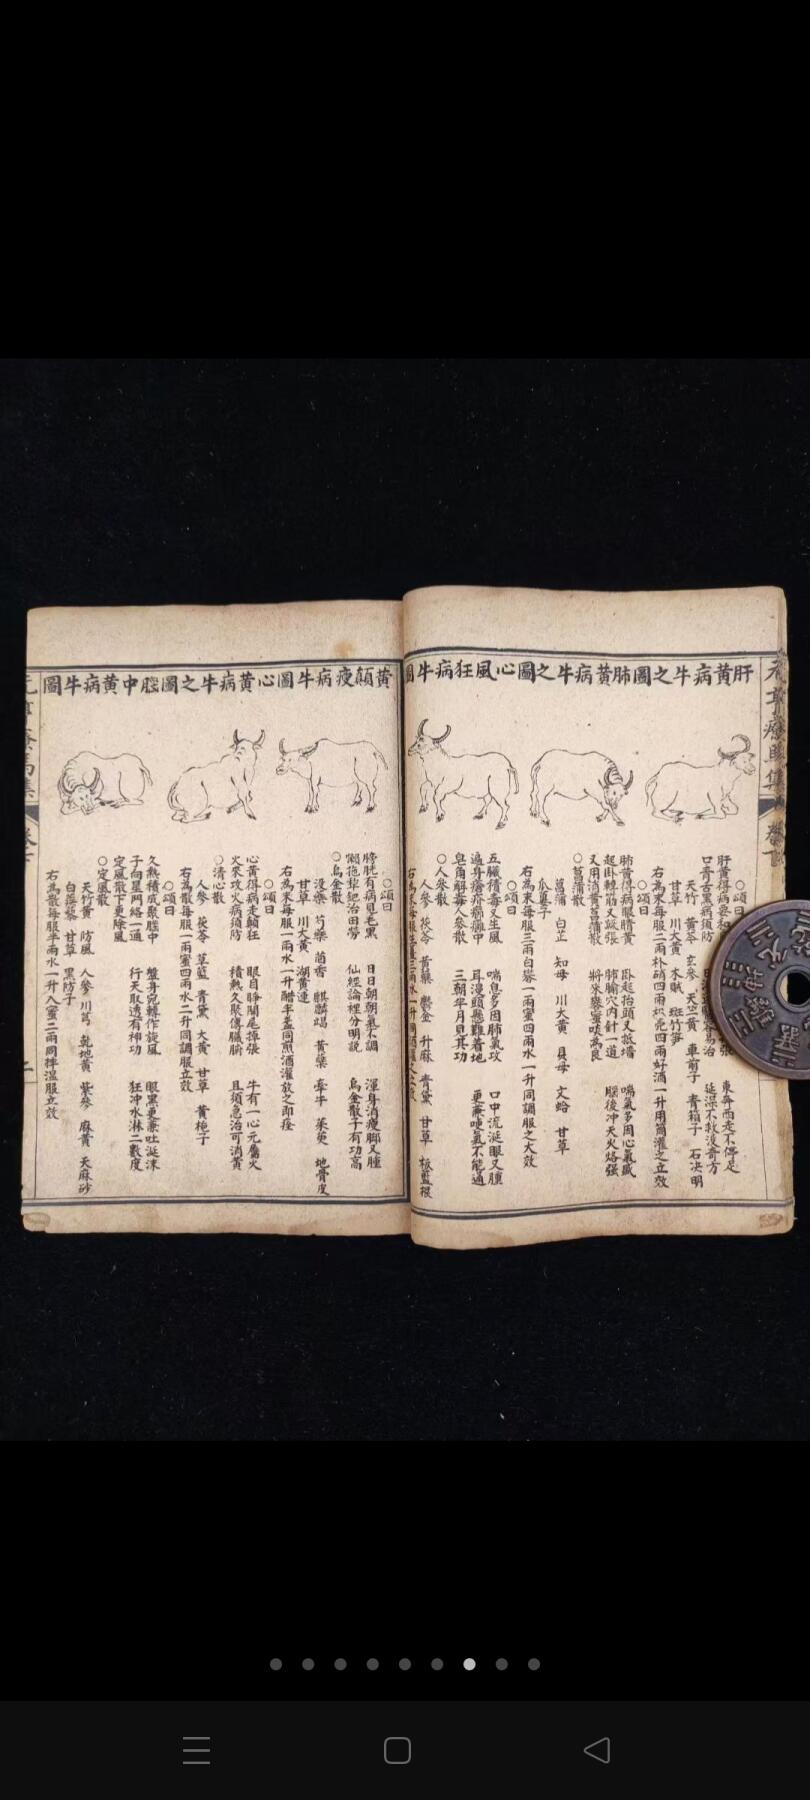 肝黃病牛之圖
肺黃病牛之圖
心風狂病牛圖
○頌曰
肝黃得病要和
東奔西走不停足
口青舌黑病須防
延濕不救沒奇方
天竹黃
黃芩
玄參
車前子
青箱子
石決明
甘草
川大黃
木賊
斑竹笋
右為末每服二兩朴硝四兩枳壳四兩好酒一升用筒灌之立效
○頌曰
肺黃得病眼睛黃
臥起抬頭又抵墻
喘氣多因心氣盛
起臥轉筋又蹶張
肺腧穴内針一道
腦後冲天火烙强
又用消黃菖蒲散
將來藥蜜啖為良
○菖蒲散
菖蒲
白芷
知母
川大黃
貝母
文蛤
甘草
瓜蔞子
右為末每服三兩白礬一兩蜜四兩水一升同調服之大效
○頌曰
五臟積毒又生風
喘息多因肺氣攻
口中流涎眼又腫
遍身瘡疥癩癩中
耳漫頭懸難着地
更兼哽氣不能通
皂角解毒人參散
三朝半月見其功
○人參散
人參
茯苓
黃藥
鬱金
升麻
青黛
甘草
板藍根
黃顛瘦病牛圖
心黃病牛之圖
腦中黃病牛圖
○頌曰
膀胱有病見毛黑
日日朝朝氣不調
渾身消瘦脚又腫
懶拖犂耙治田勞
仙經論裡分明說
烏金散子有功高
○烏金散
沒藥
芍藥
茴香
麒麟竭
黃藥
牽牛
茱萸
地骨皮
甘草
川大黃
湖黃連
右為末每服一兩水一升醋半盞同煎酒灌放之即痊
○頌曰
心黃得病走顛狂
眼目睜開尾掉張
牛有一心元屬火
火來攻火病須防
積熱久聚傳臟腑
且須急治可消黃
○清心散
人參
茯苓
草藍
青黛
大黃
甘草
黃梔子
右為散每服一兩蜜四兩水二升同調服立效
○頌曰
久熱積成聚腦中
盤身宛轉作旋風
眼黑更兼吐涎沫
子向星网絡一通
行天取透有神功
狂冲水淋二數度
定風散下更除風
○定風散
天竹黃
防風
人參
川芎
乾地黃
紫參
麻黃
天麻砂
白蒺藜
甘草
黑防子
右為散每服半兩水一升入蜜二兩同拌温服立效